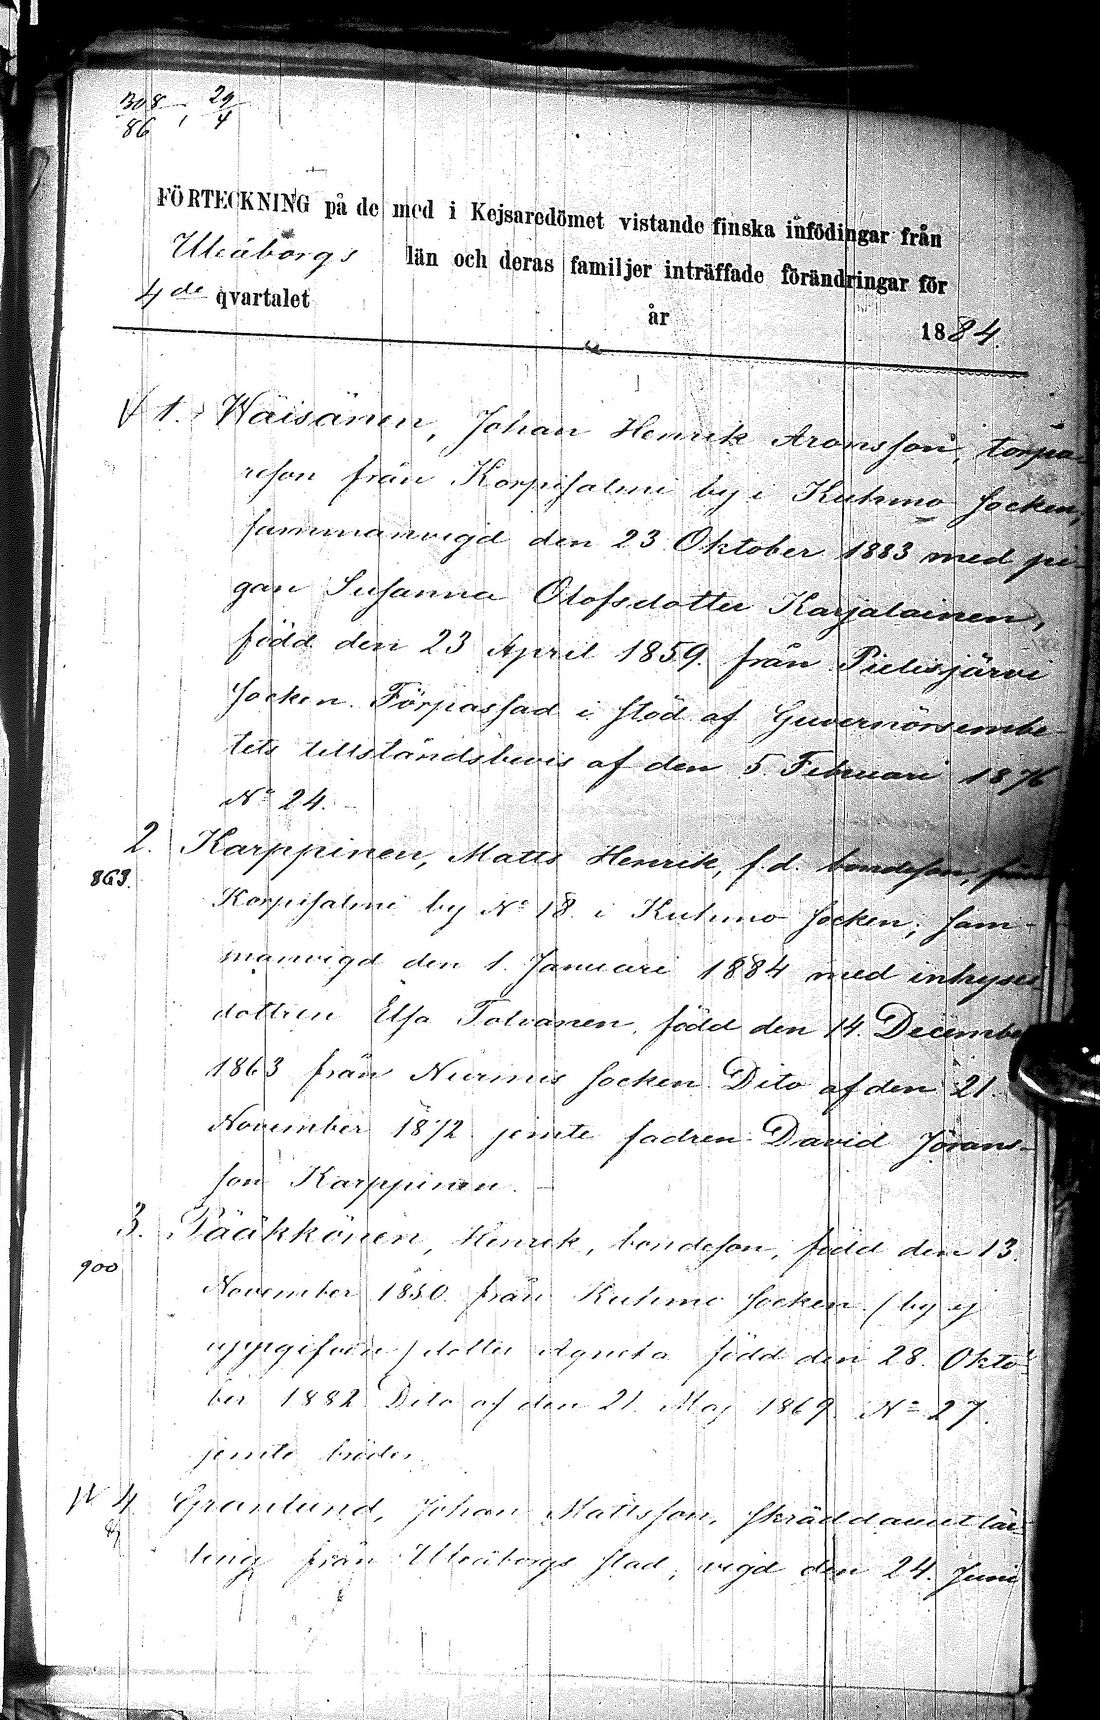 308/86, 29/4
FÖRTECKNING på de med i Kejsaredömet vistande finska infödingar från
Uleåborgs län och deras familjer inträffade förändringar för
4de qvartalet år 1884.
1. Wäisänen, Johan Henrik Aronsson, torpa-
reson från Korpisalmi by i Kuhmo socken,
sammanvigd den 23 Oktober 1883 med pi-
gan Susanna Olofsdotter Karjalainen,
född den 23 April 1859 från Pielisjärvi
socken. Förpassad i stöd af Guvernörsembe-
tets tillståndsbevis af den 5 Februari 1876
No 24.
2. Karppinen, Matts Henrik, f.d. bondeson, från
863.
Korpisalmi by No 18 i Kuhmo socken, sam-
manvigd den 1. Januari 1884 med inhyses
dottren Elsa Tolvanen, född den 14 December
1863 från Nurmis socken. Dito af den 21.
November 1872 jemte fadren David Jörans-
son Karppinen.
3. Pääkkönen, Henrik, bondeson, född den 13
900
November 1850 från Kuhmo socken (by ej
uppgifven) dotter Agneta född den 28. Okto-
ber 1882 Dito af den 21. Maj 1869 No 27.
jemte broder
4 Granlund, Johan Mattsson, skräddarelär-
ling från Uleåborgs stad, vigd den 24. Juni